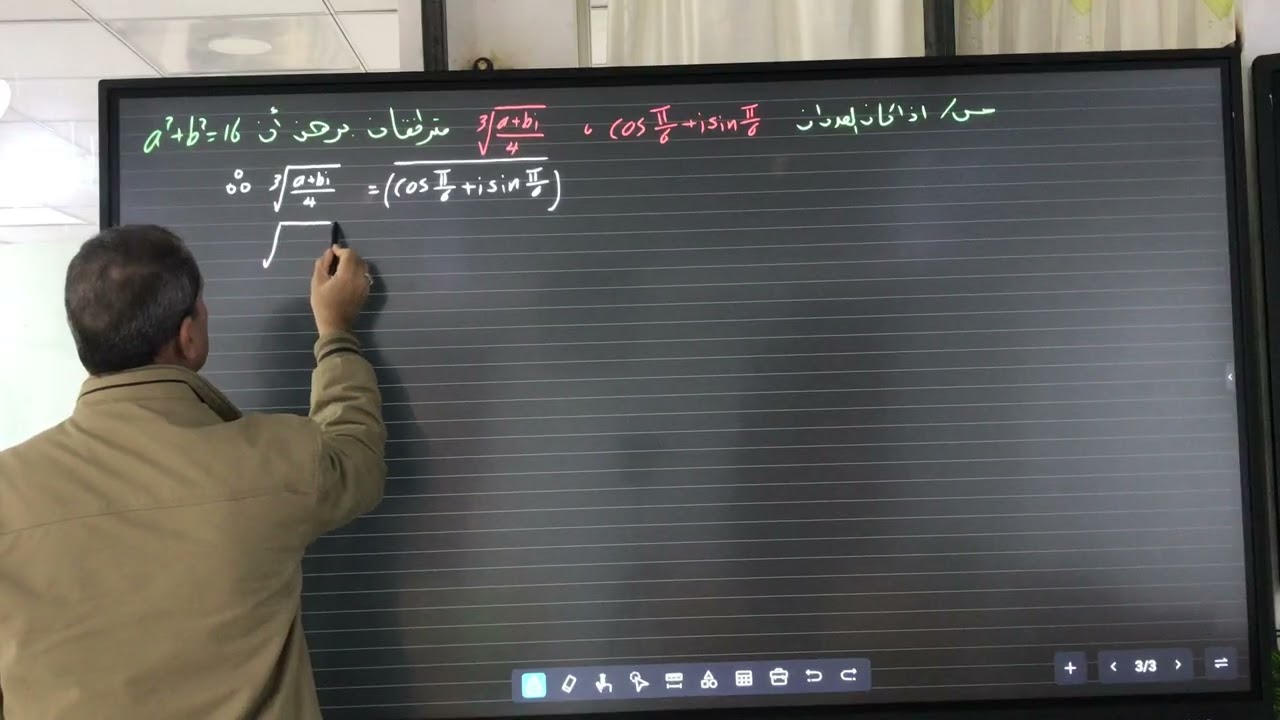 س/ اذا كان العددان cos π/6 + i sin π/6 ، ∛((a+bi)/4) مترافقان برهن أن a²+b²=16
∴ ∛((a+bi)/4) = (cos π/6 + i sin π/6)‾
√
3/3